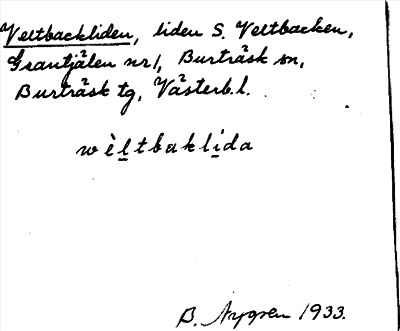 Veltbackliden, liden S. Veltbacken,
Grantjälen nr 1, Burträsk sn,
Burträsk tg, Västerb. l.
wèltbaklida
B. Nygren 1933.